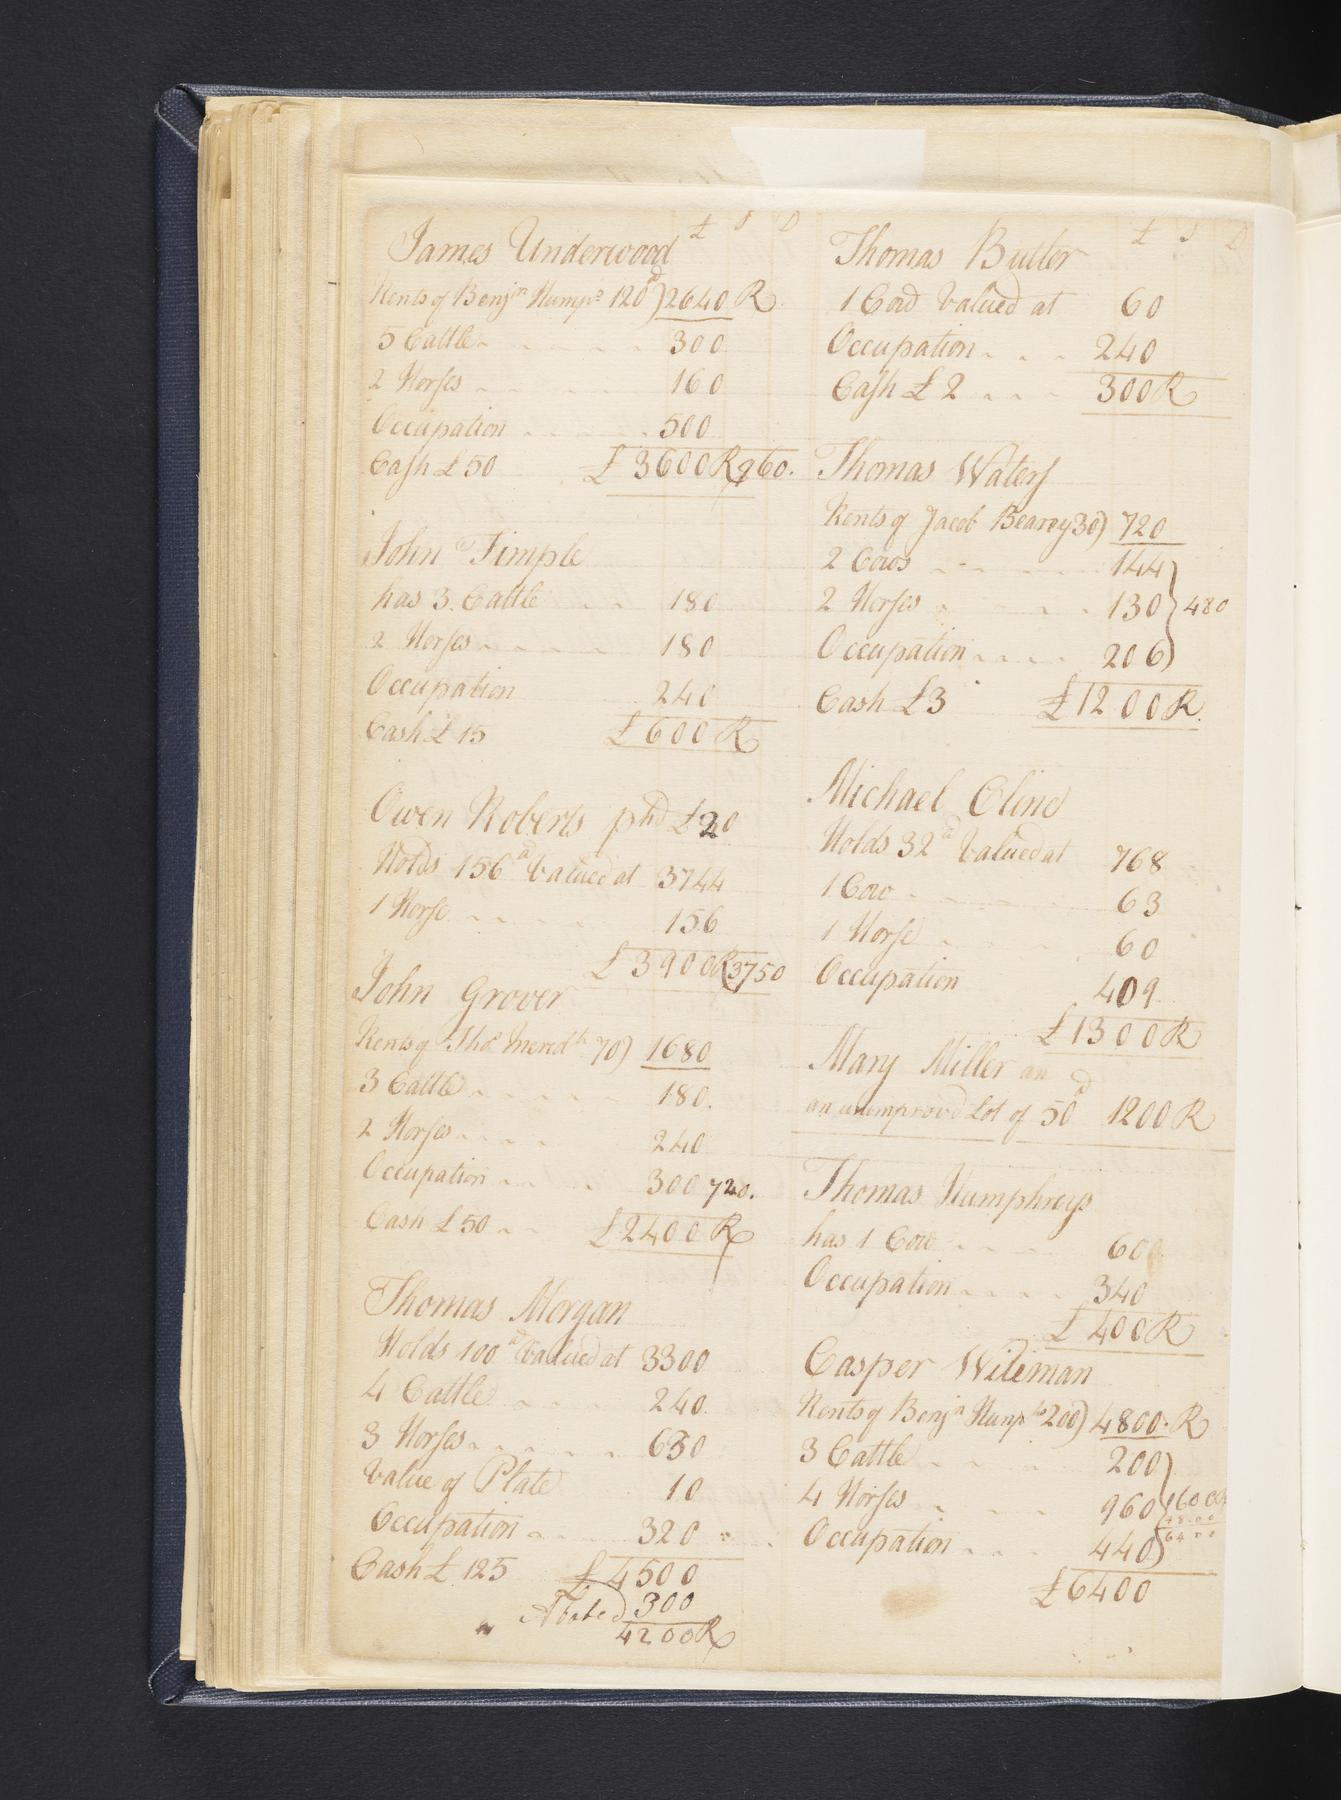 £ S D
James Underwood
Rents of Benjn Humps 120a) 2640 R
5 Cattle 300
2 Horses 160
Occupation 500
Cash £ 50 £ 3600 R 960.
John Timple
has 3 Cattle 180
2 Horses 180
Occupation 240
Cash £ 15 £ 600 R
Owen Roberts phd £20
Holds 156a Valued at 3744
1 Horse 156
£ 3900 R 3750
John Grover
Rents of Thos Meredth 70) 1680
3 Cattle 180.
2 Horses 240
Occupation 300 720.
Cash £ 50 £ 2400 R
Thomas Morgan
Holds 100a Valued at 3300
4 Cattle 240
3 Horses 630
Value of Plate 10
Occupation 320
Cash £ 125 £ 4500
Abated 300
4200 R
£ S D
Thomas Butler
1 Cow Valued at 60
Occupation 240
Cash £ 2 300 R
Thomas Waters
Rents of Jacob Bearey 30) 720
2 Cows 144
2 Horses 130 } 480
Occupation 206
Cash £3 £ 1200 R.
Michael Cline
Holds 32a Valued at 768
1 Cow 63
1 Horse 60
Occupation 409
£ 1300 R
Mary Miller an
an unimprovd Lot of 50a 1200 R
Thomas Humphreys
has 1 Cow 60
Occupation 340
£ 400 R
Casper Wileman
Rents of Benjn Humps 200) 4800. R
3 Cattle 200
4 Horses 960 } 1600
4800
6400
Occupation 440
£ 6400